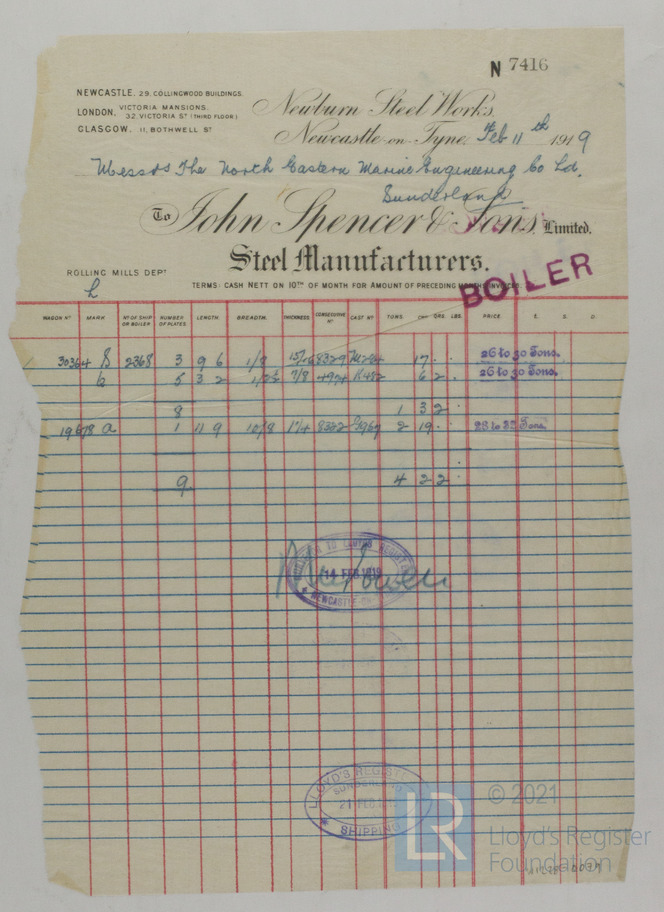 N 7416
NEWCASTLE. 29. COLLINGWOOD BUILDINGS.
LONDON. VICTORIA MANSIONS.
32. VICTORIA ST (THIRD FLOOR)
GLASGOW. 11, BOTHWELL ST
Newburn Steel Works,
Newcastle-on-Tyne, Feb 11th 1919
Messrs The North Eastern Marine Engineering Co Ld.
Sunderland
To John Spencer & Sons, Limited,
Steel Manufacturers.
ROLLING MILLS DEPT
TERMS: CASH NETT ON 10TH OF MONTH FOR AMOUNT OF PRECEDING MONTHS INVOICES.
BOILER
WAGON No MARK No OF SHIP OR BOILER NUMBER OF PLATES LENGTH. BREADTH. THICKNESS CONSECUTIVE No CAST No TONS CWT QRS. LBS. PRICE. £. S. D.
30364 2368 3 9 6 1/9 8329 17 26 to 30 Tons.
b 5 3 2 7/8 4974 6 2 26 to 30 Tons.
8 1 3 2
19678 a 1 11 9 10/8 2 19
9 4 2 2
TO LLOYD'S REGISTER
14 FEB 1919
NEWCASTLE
LLOYD'S REGISTER
SUNDERLAND
21 FEB
SHIPPING
LR
© 2021
Lloyd's Register
Foundation